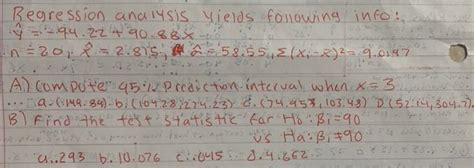 Regression analysis yields following info:
ŷ = -94.22 + 90.88x
n = 20, x̄ = 2.815, σ̂ = 58.55, Σ(xᵢ-x̄)² = 9.0197
A) Compute 95% prediction interval when x=3
b. (104.28, 274.23) c. (74.953, 103.48) D.(52.14, 304.7)
B) Find the test statistic for Ho: Bi=90
vs Ha: Bi≠90
a. .293 b. 10.076 c. .045 d. 4.662